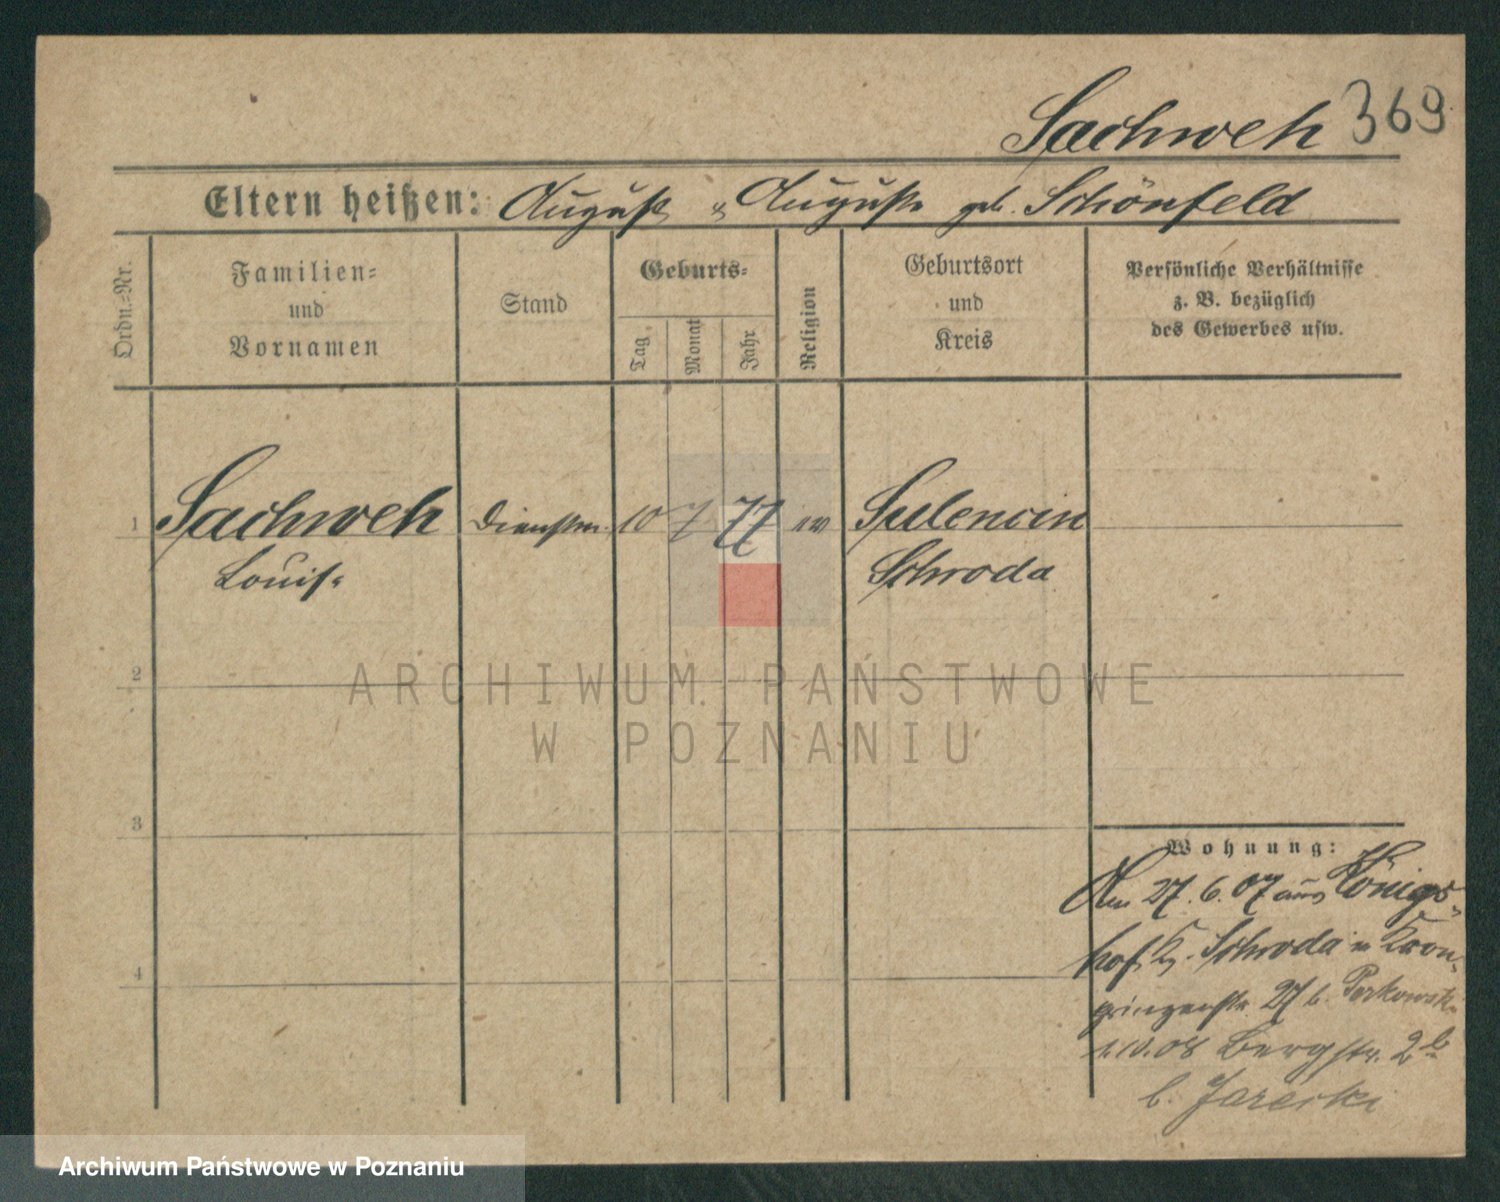 Sachweh 369
Eltern heißen: August u. Auguste geb. Schönfeld
Ordn.=Nr.
Familien=
und
Vornamen
Stand
Geburts=
Tag
Monat
Jahr
Religion
Geburtsort
und
Kreis
Persönliche Verhältnisse
z. B. bezüglich
des Gewerbes usw.
1 Sachweh 10 7 77 ev Sulencin
Schroda
2
ARCHIWUM PAŃSTWOWE
W POZNANIU
3
Wohnung:
Am 27.6.07 aus Königs-
hof Kr. Schroda n Kron-
prinzenstr. 27 b.
1.10.08 Bergstr. 2b
b. Jarecki
4
Archiwum Państwowe w Poznaniu